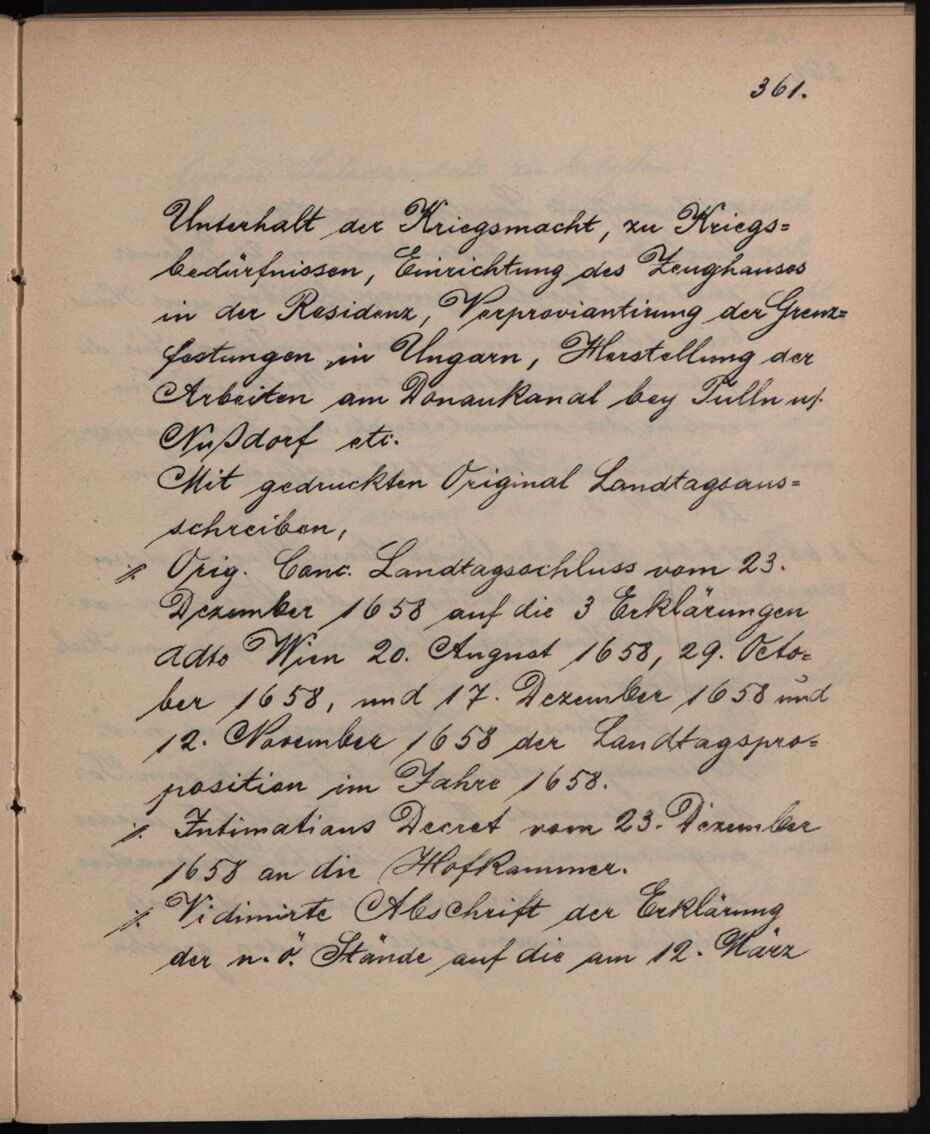 361.
Unterhalt der Kriegsmacht, zu Kriegs=
bedürfnissen, Einrichtung des Zeughauses
in der Residenz, Verproviantirung der Grenz=
festungen in Ungarn, Herstellung der
Arbeiten am Donaukanal bey Tulln u/.
Nußdorf etc.
Mit gedruckten Original Landtagsaus=
schreiben,
/. Orig. Conc. Landtagsschluss vom 23.
Dezember 1658 auf die 3 Erklärungen
ddto Wien 20. August 1658, 29. Octo=
ber 1658, und 17. Dezember 1658 und
12. November 1658 der Landtagspro=
position im Jahre 1658.
/. Intimations Decret vom 23. Dezember
1658 an die Hofkammer.
/. Vidimirte Abschrift der Erklärung
der n. ö. Stände auf die am 12. März